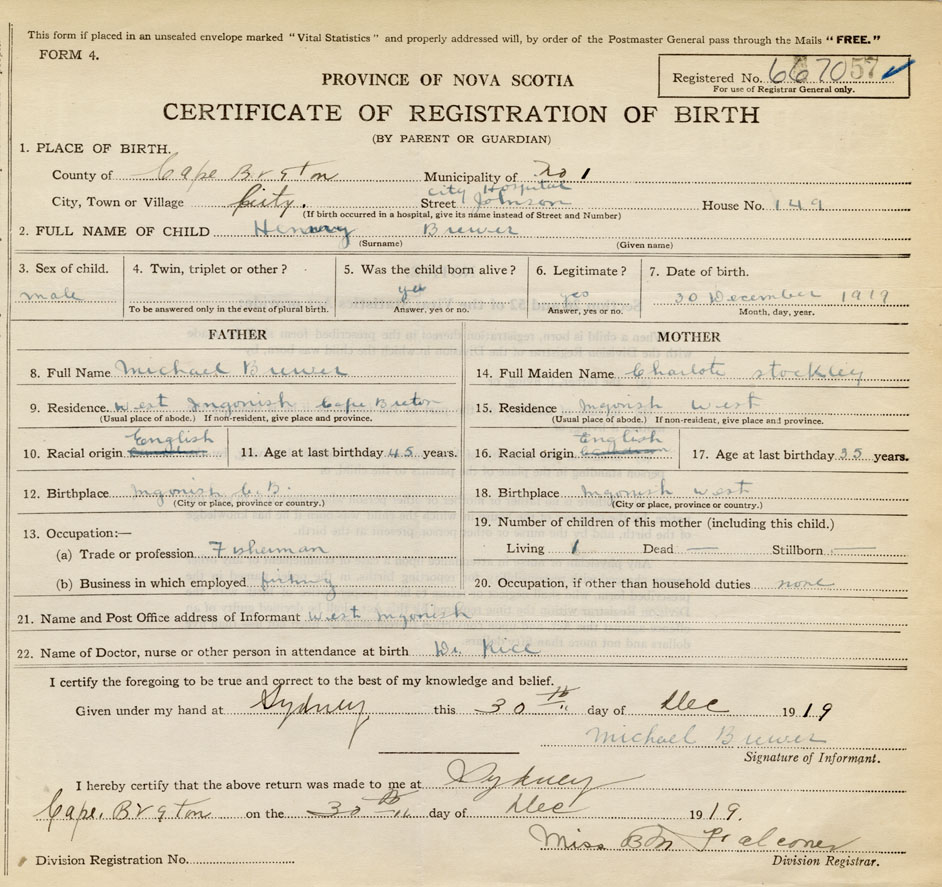 This form if placed in an unsealed envelope marked "Vital Statistics" and properly addressed will, by order of the Postmaster General pass through the Mails "FREE."
FORM 4.
PROVINCE OF NOVA SCOTIA
Registered No. 667057
For use of Registrar General only.
CERTIFICATE OF REGISTRATION OF BIRTH
(BY PARENT OR GUARDIAN)
1. PLACE OF BIRTH.
County of Cape Breton Municipality of No 1
City Hospital
City, Town or Village City. Street Johnson House No. 149
(If birth occurred in a hospital, give its name instead of Street and Number)
2. FULL NAME OF CHILD Henry Brewer
(Surname) (Given name)
3. Sex of child. 4. Twin, triplet or other? 5. Was the child born alive? 6. Legitimate? 7. Date of birth.
male yes yes 30 December 1919
To be answered only in the event of plural birth. Answer, yes or no. Answer, yes or no. Month, day, year.
FATHER MOTHER
8. Full Name Michael Brewer 14. Full Maiden Name Charlote stockley
9. Residence. West Ingonish Cape Breton 15. Residence Ingonish West
(Usual place of abode.) If non-resident, give place and province. (Usual place of abode.) If non-resident, give place and province.
10. Racial origin English 11. Age at last birthday 45 years. 16. Racial origin English 17. Age at last birthday 35 years.
12. Birthplace Ingonish C.B. 18. Birthplace Ingonish West
(City or place, province or country.) (City or place, province or country.)
13. Occupation:— 19. Number of children of this mother (including this child.)
(a) Trade or profession Fisherman Living 1 Dead — Stillborn —
(b) Business in which employed fishing 20. Occupation, if other than household duties none
21. Name and Post Office address of Informant West Ingonish
22. Name of Doctor, nurse or other person in attendance at birth Dr. Rice
I certify the foregoing to be true and correct to the best of my knowledge and belief.
Given under my hand at Sydney this 30th day of Dec 1919
Michael Brewer
Signature of Informant.
I hereby certify that the above return was made to me at Sydney
Cape. Breton on the 30th day of Dec 1919.
Miss B M Falconer
Division Registration No. Division Registrar.